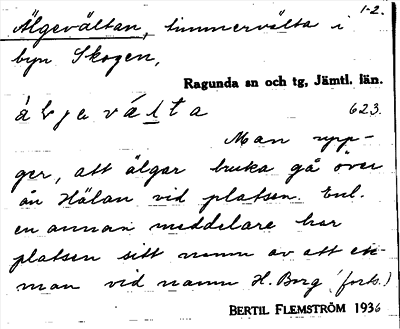 1-2.
Älgevältan, timmervälta i
byn Skogen,
Ragunda sn och tg, Jämtl. län.
623.
Man upp-
ger, att älgar bruka gå över
ån Hälan vid platsen. Enl.
en annan meddelare har
platsen sitt namn av att en
man vid namn H. Borg (forts.)
BERTIL FLEMSTRÖM 1936